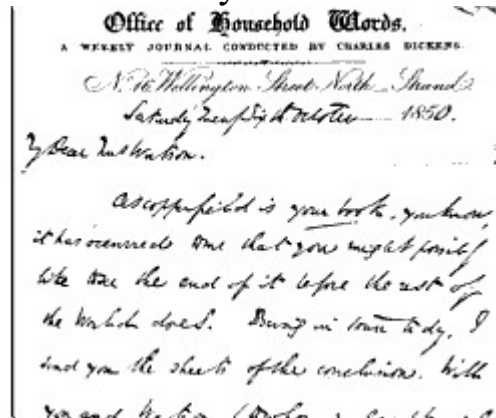 Office of Household Words.
A WEEKLY JOURNAL CONDUCTED BY CHARLES DICKENS.
No. 16 Wellington Street North Strand
Saturday October 1850.
My Dear Mrs Watson.
As Copperfield is your book, you know,
it has occurred to me that you might possibly
like to see the end of it before the rest of
the World does. Being in town to day, I
send you the sheets of the conclusion. With
you and Watson